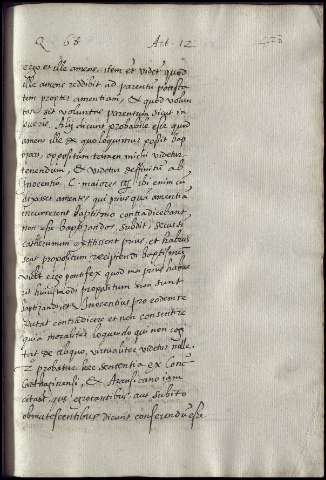 Q. 68 Art. 12
ergo et ille amens. item et videtur quod
ille amens reddibit ad parentum potesta
tem propter amentiam, et quod volun
tas sit voluntas parentum sicut in
pueris. Alij dicunt probabile esse quod
amens ille de quo loquimur possit bap
tizari, oppositum tamen michi videtur
tenendum, et videtur definitum ab
Innocentio C. maiores ibi enim cum
dixisset amentes qui prius quam amentiam
incurrerent baptismo contradicebant
non esse baptizandos, subdit, secus si
cathecumeni extitissent prius, et habuis
sent propositum recipiendi baptismum
videt ergo pontifex quod qui prius habue
runt huiusmodi propositum non sunt
baptizandi, et Innocentius pro eodem re
putat contradicere et non consentire
quia moraliter loquendo qui non cogi
tat de aliquo, virtualiter videtur nolle.
2 probatur hec sententia ex Conci
Carthaginensi, et Arausicano iam
citatis, quibus egrotantibus, aut subito
obmutescentibus dicunt conferendum esse